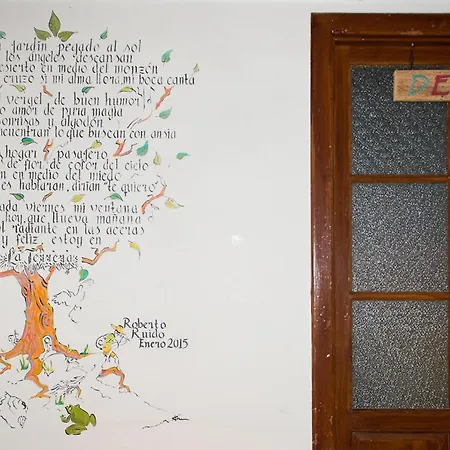 jardín pegado al sol
los ángeles descansan
desierto en medio del monzón
cruzo si mi alma llora, mi boca canta
vergel, de buen humor
amor de pura magia
sonrisas y algodón
encuentran lo que buscan con ansia
hogar pasajero
de flor, de color del cielo
en medio del miedo
hablaran, dirían "te quiero"
cada viernes mi ventana
hoy, que llueva mañana
radiante en las aceras
y feliz, estoy en
La
Roberto
Ruido
Enero 2015
DE